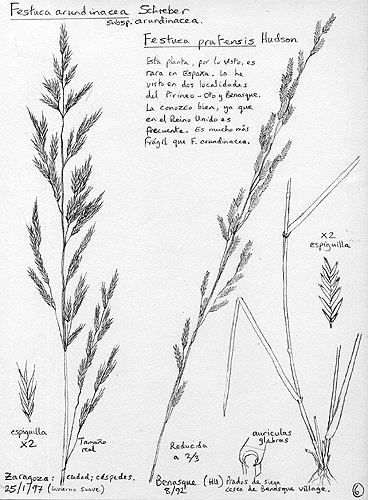 Festuca arundinacea Schreber
subsp. arundinacea.
Festuca pratensis Hudson
Esta planta, por lo visto, es
rara en España. La he
visto en dos localidades
del Pirineo - Oto y Benasque.
La conozco bien, ya que
en el Reino Unido es
frecuente. Es mucho más
frágil que F. arundinacea.
x2
espiguilla
espiguilla
x2
Tamaño
real
Reducida
a 2/3
auriculas
glabras
Zaragoza: ciudad; céspedes.
25/1/97 (invierno suave)
Benasque (HU) Prados de siega
8/92 cerca de Benasque village.
6